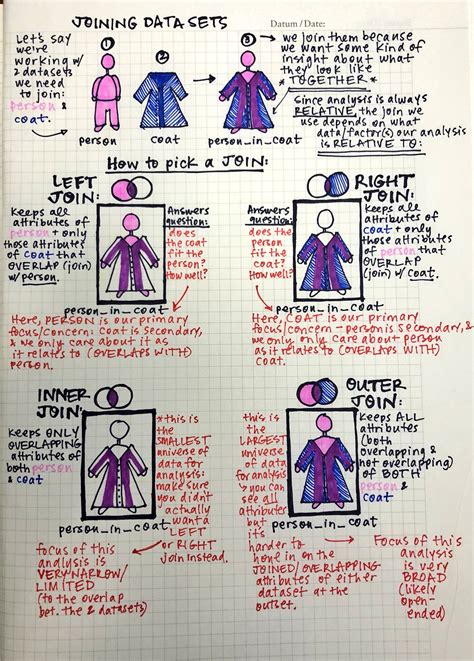 JOINING DATA SETS
Datum / Date:
Let's say
we're
working w/
2 datasets
we need
to join:
person &
coat.
1
2
3
person
coat
person_in_coat
we join them because
we want some kind of
insight about what
they look like
*TOGETHER*
since analysis is always
RELATIVE, the join we
use depends on what
data/factor(s) our analysis
is RELATIVE TO:
How to pick a JOIN:
LEFT
JOIN:
keeps all
attributes of
person + only
those attributes
of coat that
OVERLAP (join)
w/ person.
Answers
question:
does
the coat
fit the
person?
How well?
person_in_coat
Here, PERSON is our primary
focus/concern: Coat is secondary,
& we only care about it as
it relates to (OVERLAPS WITH)
person.
RIGHT
JOIN:
Answers
question:
does the
person
fit the
coat?
How well?
keeps all
attributes of
coat + only
those attributes
of person that
OVERLAP
(join) w/ coat.
person_in_coat
Here, COAT is our primary
focus/concern - person is secondary, &
we only care about person
as it relates to (OVERLAPS WITH)
coat.
INNER
JOIN:
keeps ONLY
OVERLAPPING
attributes of
both person
& coat
person_in_coat
*this is
the
SMALLEST
universe of
data for
analysis:
make sure
you didn't
actually
want a
LEFT
or RIGHT
Join instead.
focus of this
analysis is
VERY NARROW/
LIMITED
(to the overlap
bet. the 2 datasets)
OUTER
JOIN:
this is
the
LARGEST
universe
of data
for analysis
you can
see all
attributes
but
it's
harder to
hone in on the
JOINED/OVERLAPPING
attributes of either
dataset at the
outset.
keeps ALL
attributes
(both
overlapping &
not overlapping)
of BOTH
person &
coat
person_in_coat
Focus of this
analysis
is very
BROAD
(likely
open-
ended)